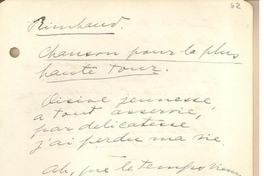 62
Rimbaud.
Chanson pour la plus
haute Tour.
Oisive jeunesse,
a tout asservie,
par délicatesse
j'ai perdu ma vie.
Ah, que le temps vienne